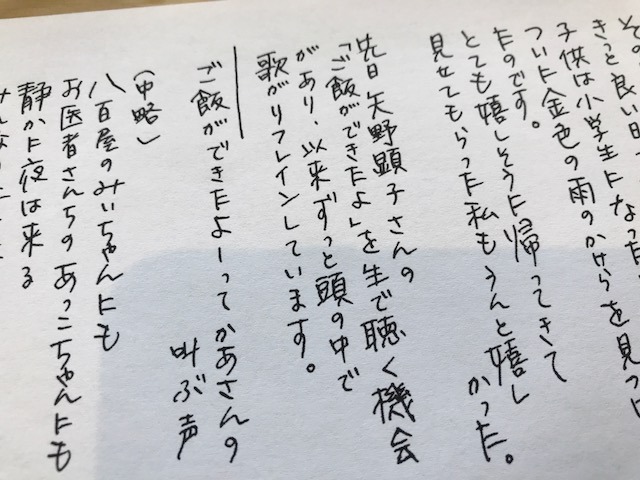 きっと良い日
子供は小学生になった
ついた金色の雨のかけらを見つけ
たのです。
とても嬉しそうに帰ってきて
見せてもらった私もうんと嬉し
かった。
先日矢野顕子さんの
「ご飯ができたよ」を生で聴く機会
があり、以来ずっと頭の中で
歌がリフレインしています。
ご飯ができたよーってかあさんの
叫ぶ声
(中略)
八百屋のみいちゃんにも
お医者さんちのあっこちゃんにも
静かに夜は来る